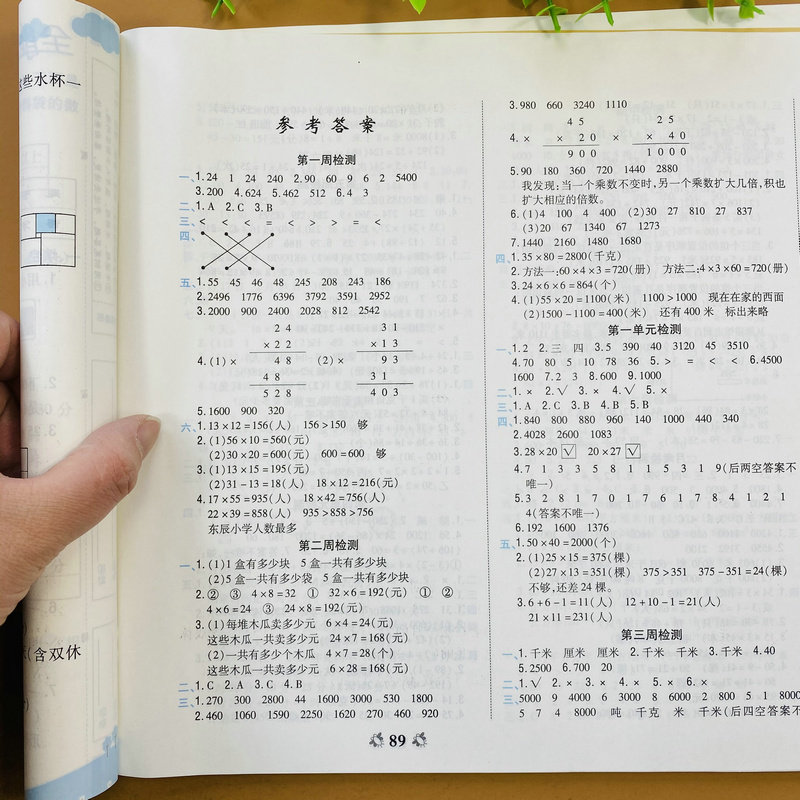 这些水杯一
(含双休
参考答案
第一周检测
一、1.24 1 24 240 2.90 60 9 6 2 5400
3.200 4.624 5.462 512 6.4 3
二、1.A 2.C 3.B
三、< < < = < > > = <
四、
五、1.55 45 46 48 245 208 243 186
2.2496 1776 6396 3792 3591 2952
3.2000 900 2400 2028 812 2542
2 4 3 1
4.(1)× 2 2 (2)× 1 3
4 8 9 3
4 8 3 1
5 2 8 4 0 3
5.1600 900 320
六、1.13×12=156(人) 156>150 够
2.(1)56×10=560(元)
(2)30×20=600(元) 600=600 够
3.(1)13×15=195(元)
(2)31-13=18(人) 18×12=216(元)
4.17×55=935(人) 18×42=756(人)
22×39=858(人) 935>858>756
东辰小学人数最多
第二周检测
一、1.(1)1盒有多少块 5盒一共有多少块
(2)5盒一共有多少袋 5盒一共有多少块
2.② ③ 4×8=32 ① 32×6=192(元) ① ②
4×6=24 ③ 24×8=192(元)
3.(1)每堆木瓜卖多少元 6×4=24(元)
这些木瓜一共卖多少元 24×7=168(元)
(2)一共有多少个木瓜 4×7=28(个)
这些木瓜一共卖多少元 6×28=168(元)
二、1.C 2.A 3.C 4.B
三、1.270 300 2800 44 1600 3000 530 1800
2.460 1060 1590 2250 1620 270 460 920
3.980 660 3240 1110
4 5 2 5
4.× × 2 0 × × 4 0
9 0 0 1 0 0 0
5.90 180 360 720 1440 2880
我发现:当一个乘数不变时,另一个乘数扩大几倍,积也
扩大相应的倍数。
6.(1)4 100 4 400 (2)30 27 810 27 837
(3)20 67 1340 67 1273
7.1440 2160 1480 1680
四、1.35×80=2800(千克)
2.方法一:60×4×3=720(册) 方法二:4×3×60=720(册)
3.24×6×6=864(个)
4.(1)55×20=1100(米) 1100>1000 现在在家的西面
(2)1500-1100=400(米) 还有400米 标出来略
第一单元检测
一、1.2 2.三 四 3.5 390 40 3120 45 3510
4.70 80 5 10 78 36 5.> = < < 6.4500
1600 7.2 3 8.600 9.1000
二、1.× 2.√ 3.× 4.√ 5.×
三、1.A 2.C 3.B 4.B 5.B
四、1.840 800 880 960 140 1000 440 340
2.4028 2600 1083
3.28×20√ 20×27√
4.7 1 3 3 5 8 1 1 5 3 1 9(后两空答案不
唯一)
5.3 2 8 1 7 0 1 7 6 1 7 8 4 1 2 1
4(答案不唯一)
6.192 1600 1376
五、1.50×40=2000(个)
2.(1)25×15=375(棵)
(2)27×13=351(棵) 375>351 375-351=24(棵)
不够,还差24棵。
3.6+6-1=11(人) 12+10-1=21(人)
21×11=231(人)
第三周检测
一、1.千米 厘米 厘米 2.千米 千米 3.千米 4.40
5.2500 6.700 20
二、1.√ 2.× 3.× 4.× 5.× 6.×
三、5000 9 4000 6 3000 8 6000 2 800 5 1 8000
5 7 4 8000 吨 千克 米 千米(后四空答案不
89